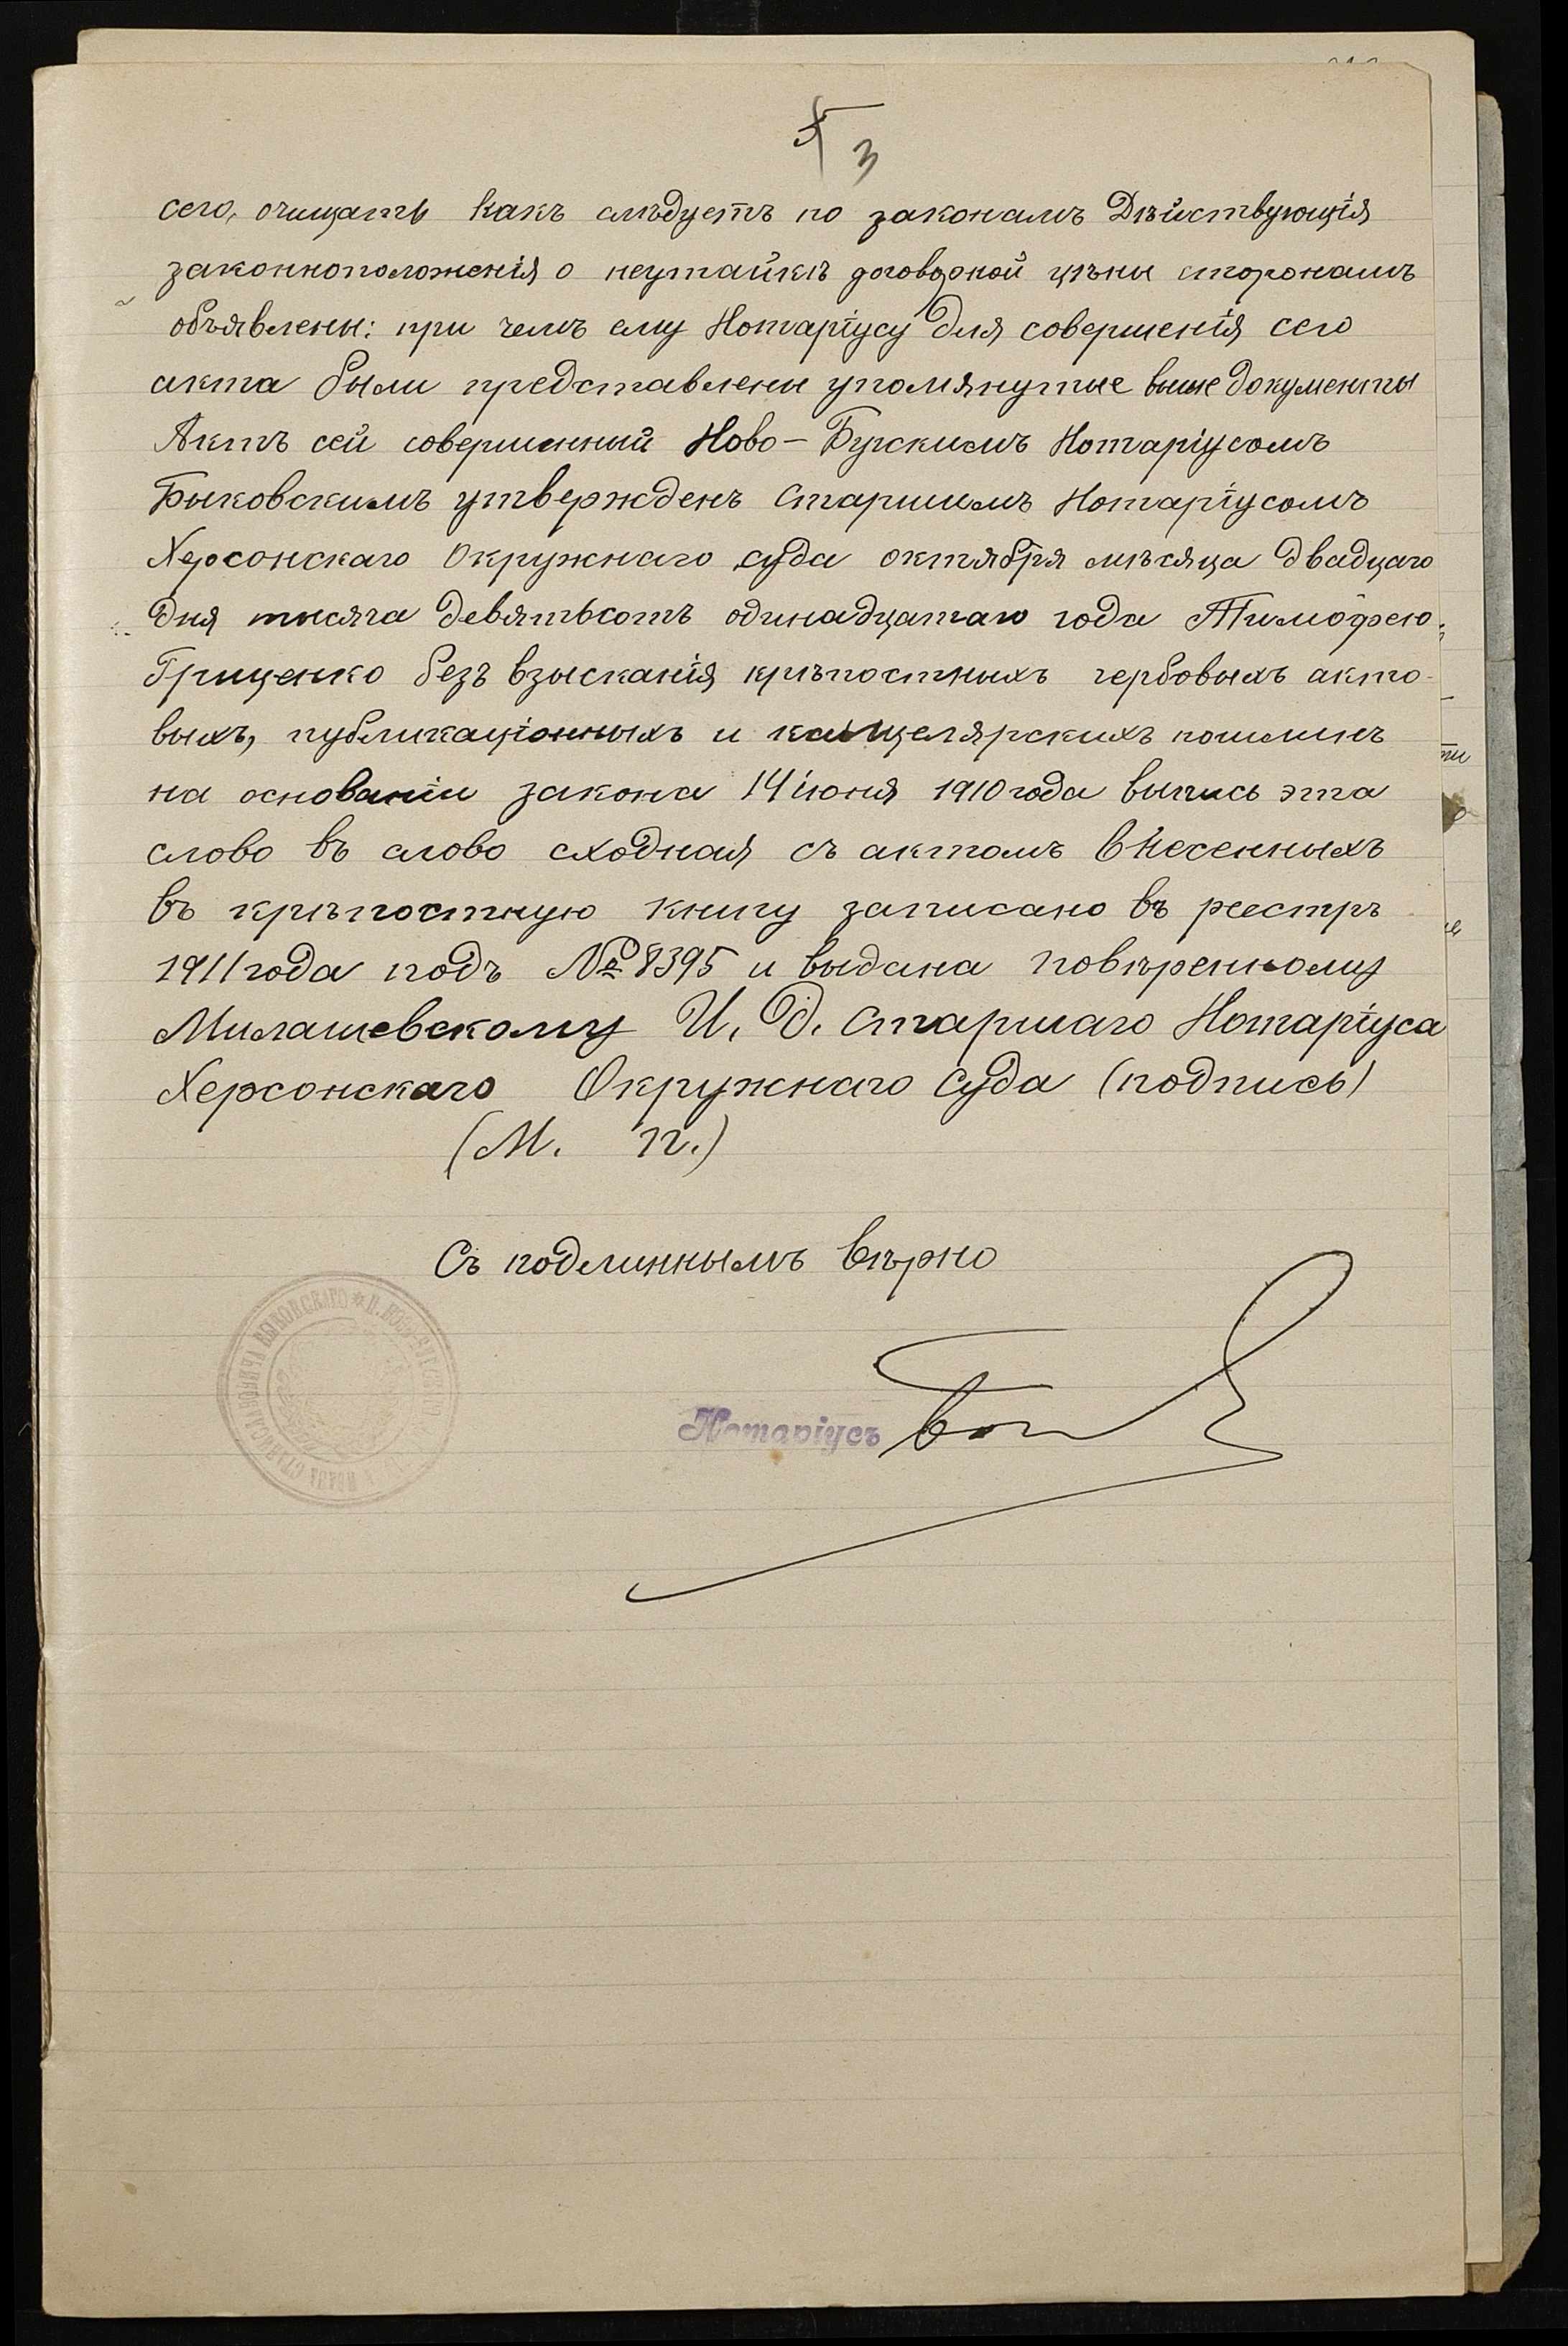 3
сего, очищать какъ слѣдуетъ по законамъ Дѣйствующія
законноположенія о неутайкѣ договорной цѣны сторонамъ
объявлены: при чемъ ему Нотаріусу для совершенія сего
акта были представлены упомянутые выше документы
Актъ сей совершенный Ново-Бугскимъ Нотаріусомъ
Быковскимъ утвержденъ Старшимъ Нотаріусомъ
Херсонскаго Окружнаго суда октября мѣсяца двадцаго
дня тысяча девятьсотъ одинадцатаго года Тимофею
Гриценко безъ взысканія крѣпостныхъ гербовыхъ акто-
выхъ, публикаціонныхъ и канцелярскихъ пошлинъ
на основаніи закона 14 іюня 1910 года выпись эта
слово въ слово сходная съ актомъ внесенныхъ
въ крѣпостную книгу записано въ реестръ
1911 года подъ № 8395 и выдана повѣренному
Милашевскому И. Д. Старшаго Нотаріуса
Херсонскаго Окружнаго Суда (подпись)
(М. П.)
Съ подлиннымъ вѣрно
Нотаріусъ